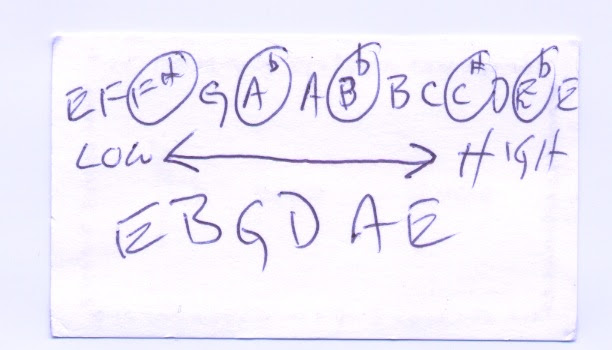 E F F# G Ab A Bb B C C# D Eb E
LOW HIGH
E B G D A E